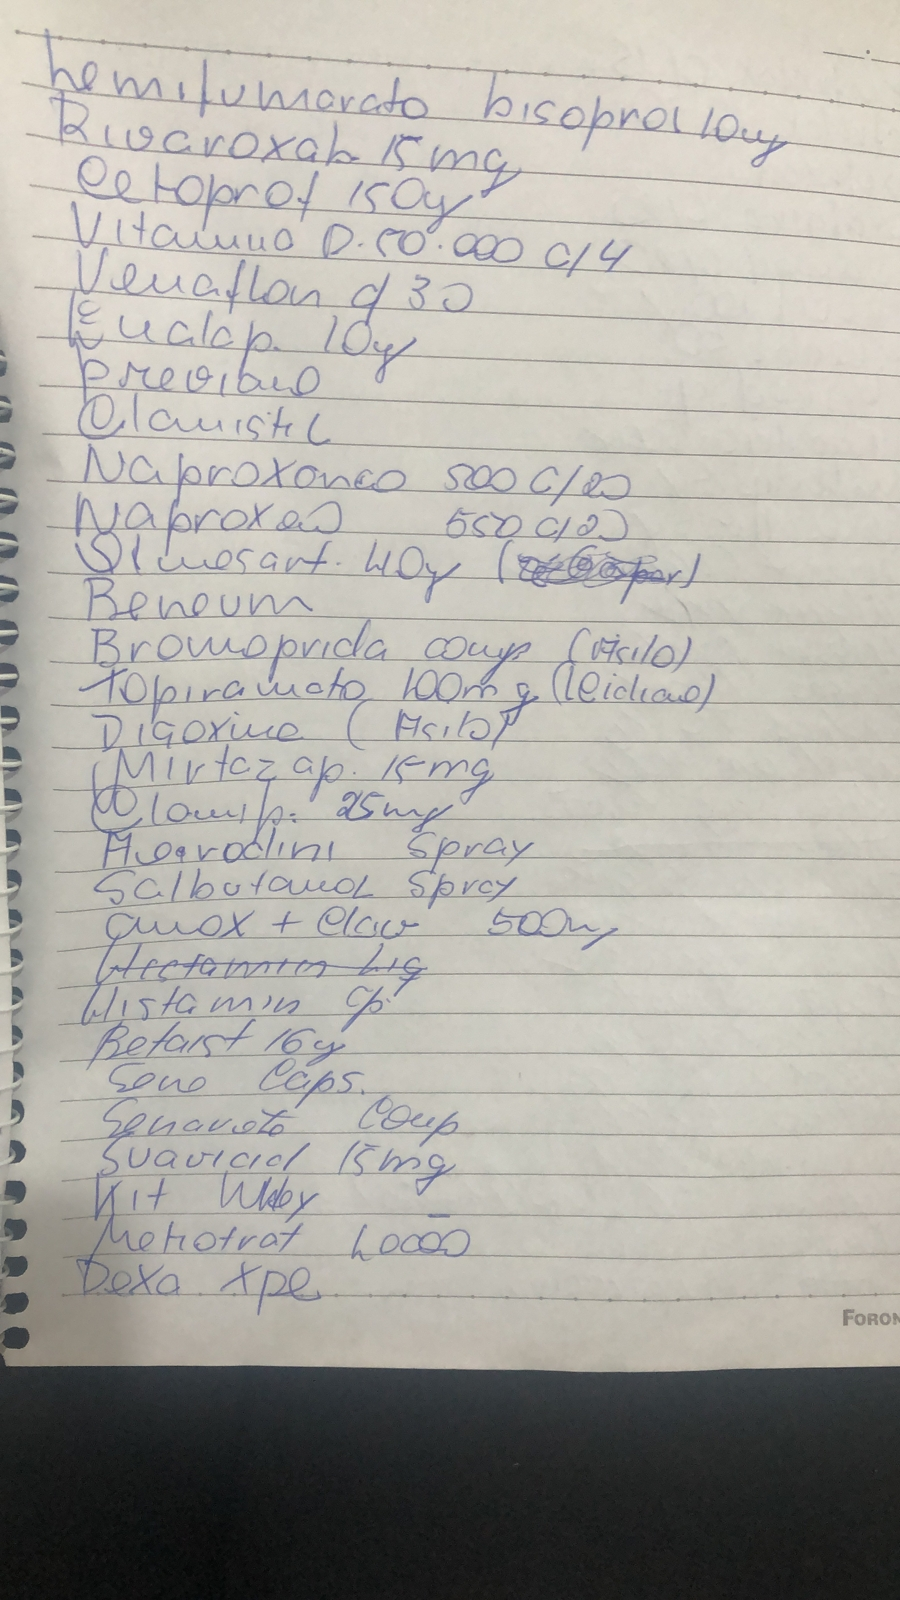 hemifumarato bisoprol 10mg
Rivaroxab 15mg
Cetoprof 150mg
Vitamina D. 50.000 C/4
Venaflon c/ 30
Enalap. 10mg
Previane
Clamistil
Naproxeno 500 C/20
Naproxeno 550 C/20
Olmesart. 40mg
Beneum
Bromoprida comp (Asilo)
Topiramato 100mg
Digoxina (Asilo)
Mirtazap. 15mg
Clomip. 25mg
Aerodini Spray
Salbutamol Spray
amox + Clav 500mg
Histamin Liq
Histamin cp.
Betaist 16mg
Sene Caps.
Comp
Suavicid 15mg
Kit
Dexa xpe
FORON